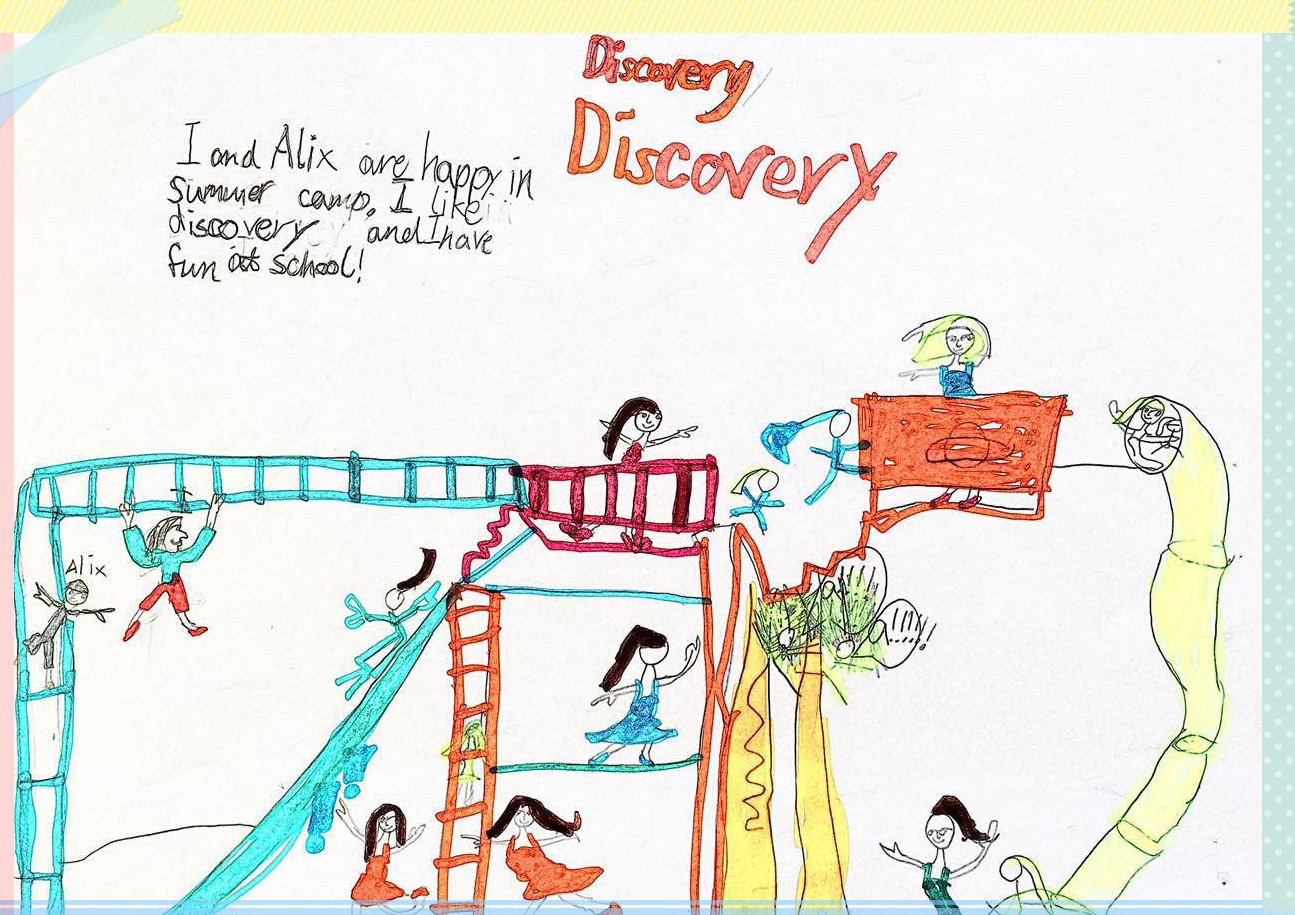 Discovery
Discovery
I and Alix are happy in
summer camp. I like
discovery and I have
fun at school!
Alix